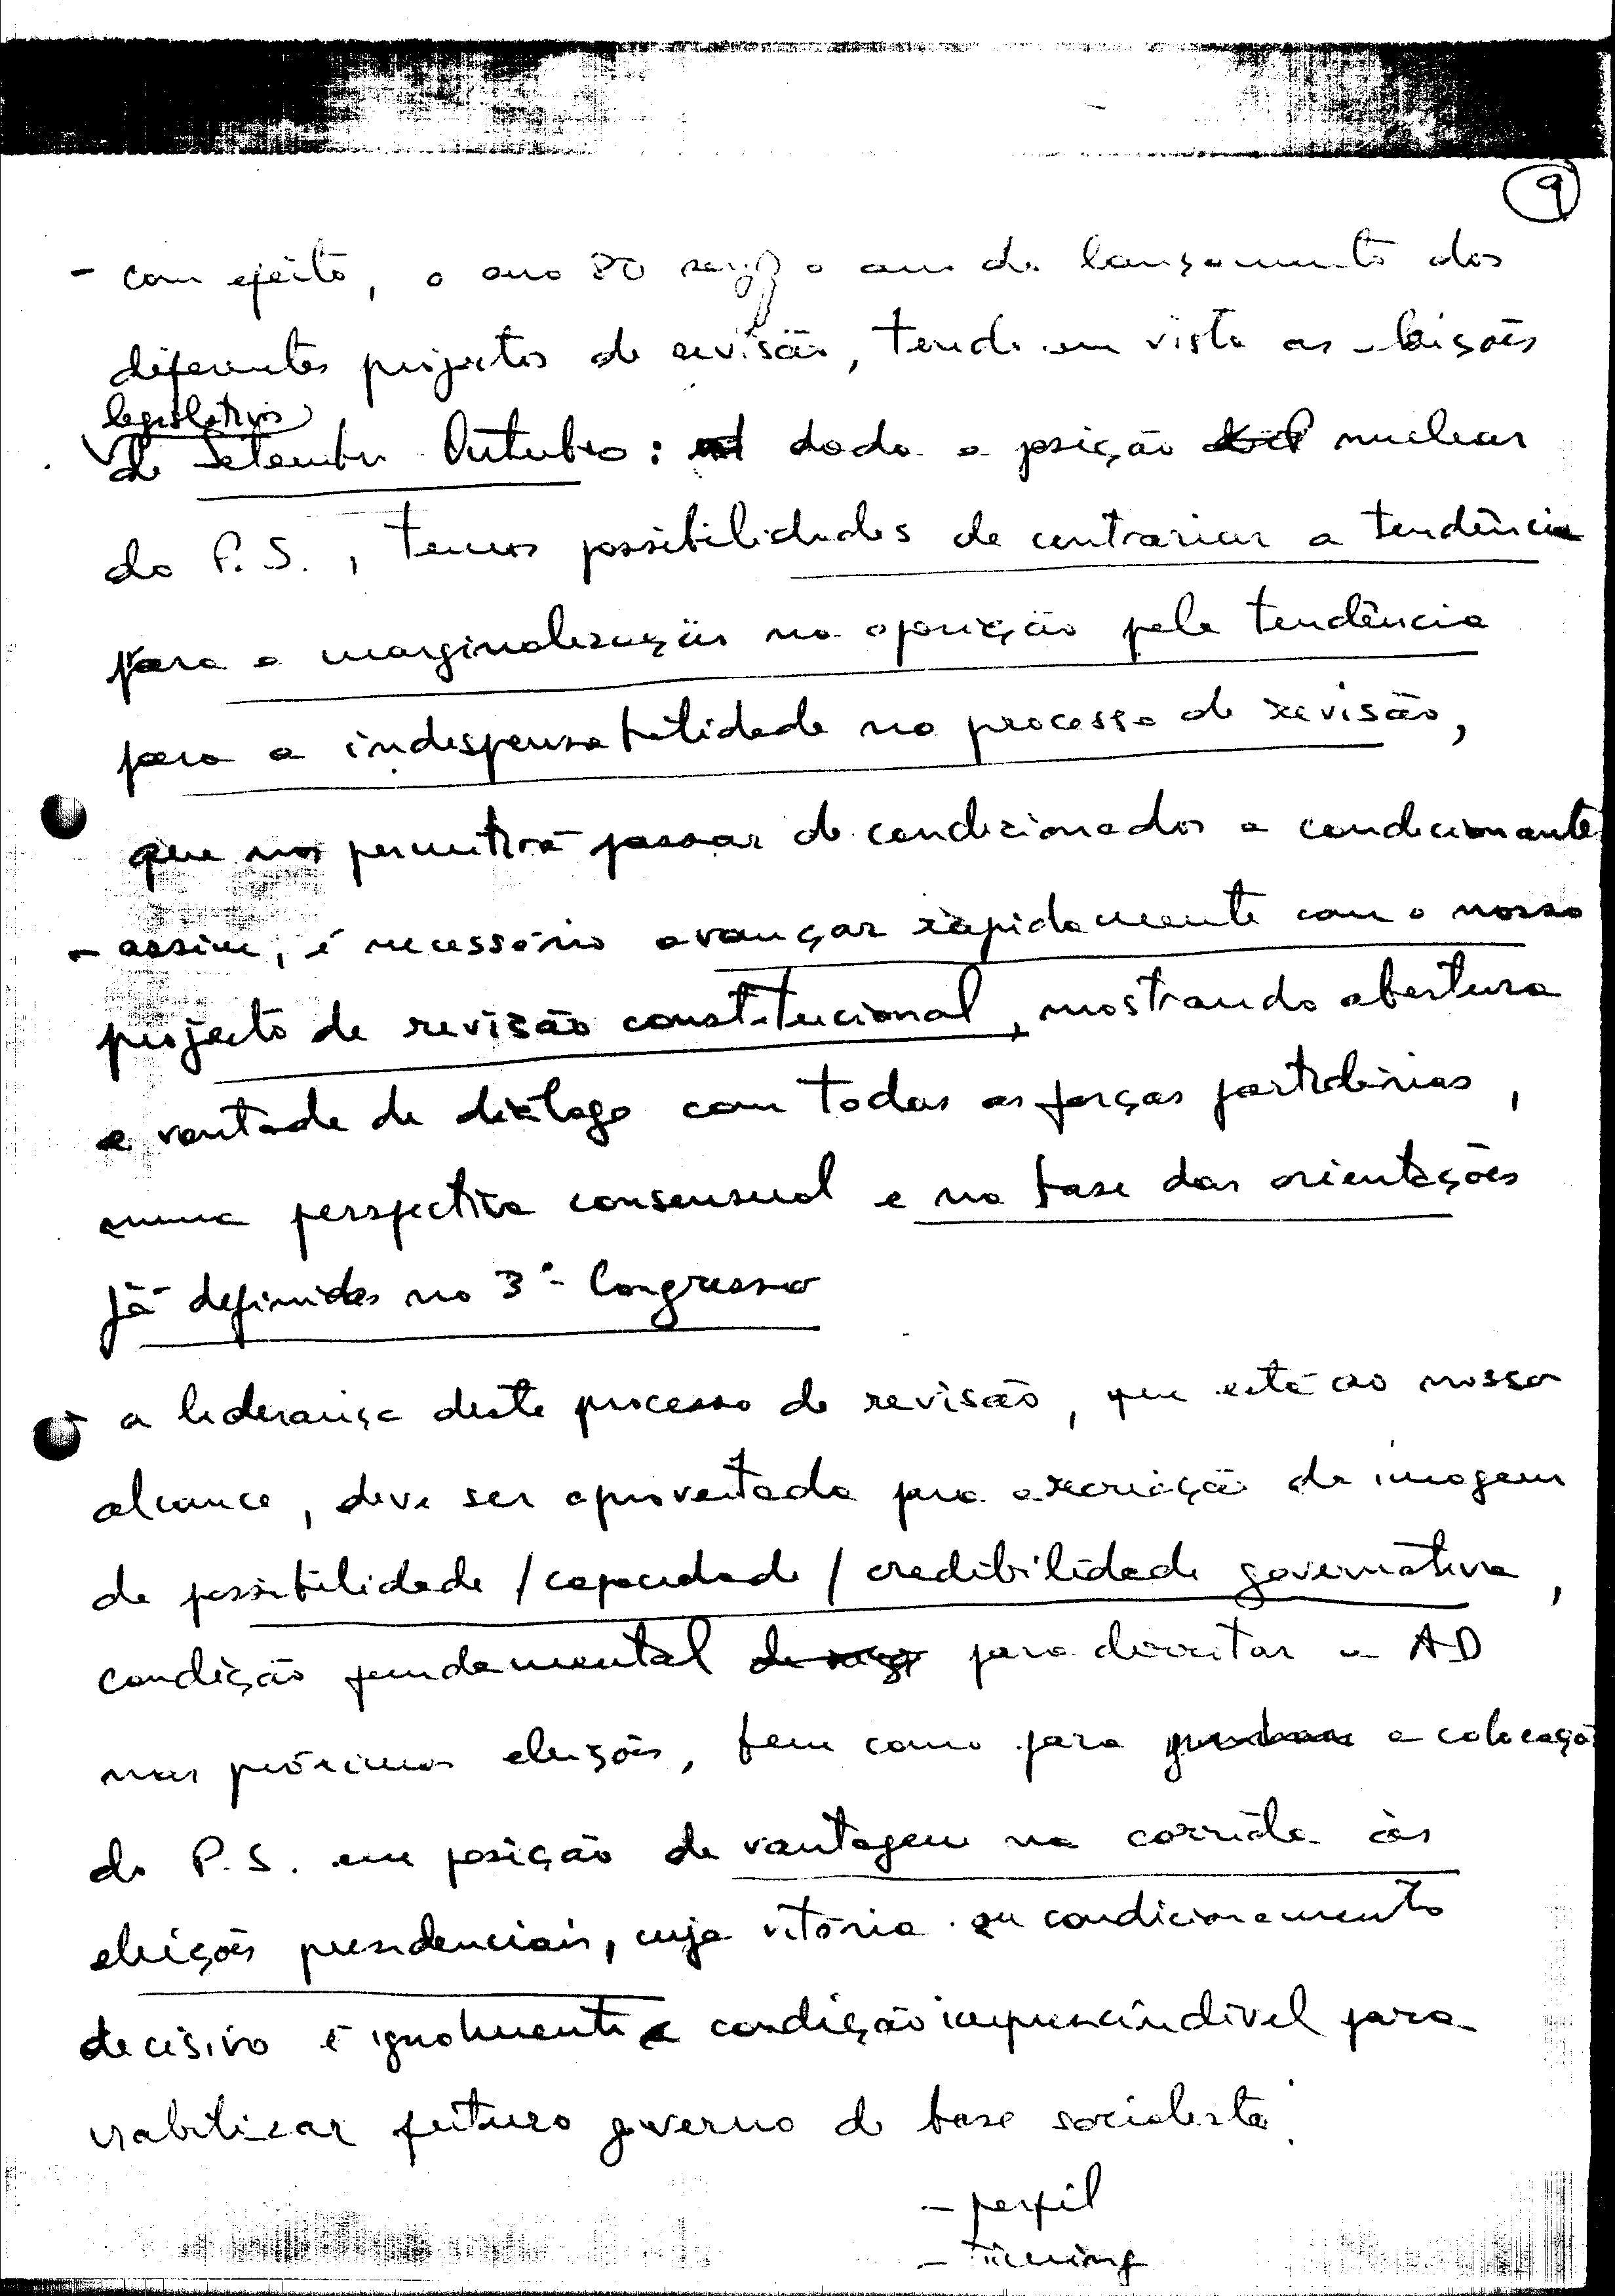 9
- com efeito, o ano 80 será o ano do lançamento dos
diferentes projectos de revisão, tendo em vista as eleições
legislativas
de Setembro Outubro: dada a posição nuclear
do P.S., temos possibilidades de contrariar a tendência
para a marginalização na oposição pela tendência
para a indispensabilidade no processo de revisão,
que nos permitirá passar de condicionados a condicionantes
- assim, é necessário avançar rapidamente com o nosso
projecto de revisão constitucional, mostrando abertura
e vontade de diálogo com todas as forças partidárias,
numa perspectiva consensual e na base das orientações
já definidas no 3º Congresso
- a liderança deste processo de revisão, que está ao nosso
alcance, deve ser aproveitada para a criação da imagem
de possibilidade / capacidade / credibilidade governativa,
condição fundamental para derrotar a AD
nas próximas eleições, bem como para a colocação
do P.S. em posição de vantagem na corrida às
eleições presidenciais, cuja vitória ou condicionamento
decisivo é igualmente condição imprescindível para
viabilizar futuro governo de base socialista.
- perfil
- timing